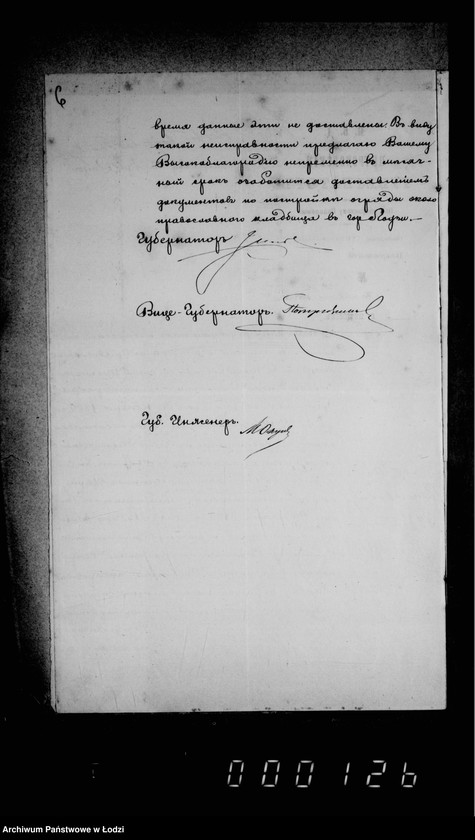 6
время данные эти не доставлены. Въ виду
такой неисправности предлагаю Вашему
Высокоблагородію непременно въ месяч-
ный срокъ озаботится доставленіемъ
документовъ по постройкѣ ограды около
православнаго кладбища въ гор. Лодзи.—
Губернаторъ
Вице-Губернаторъ.
Губ. Инженеръ.
000126
Archiwum Państwowe w Łodzi